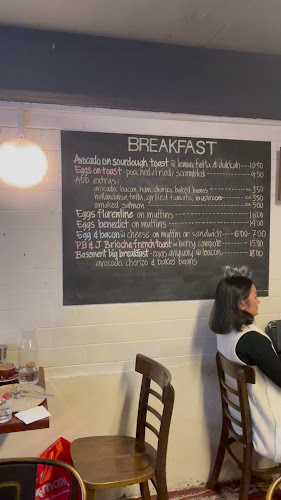 BREAKFAST
Avocado on sourdough toast w lemon, fetta & dukkah --- 10.50
Eggs on toast poached/fried/scrambled --- 9.50
Add extras:
avocado, bacon, ham, chorizo, baked beans --- 3.50
hollandaise, fetta, grilled tomato, mushroom --- 3.50
smoked salmon --- 5.00
Eggs florentine on muffins --- 16.90
Eggs benedict on muffins --- 17.90
Egg & bacon w cheese on muffin or sandwich --- 6.00-7.00
PB & J Brioche french toast w berry compote --- 15.80
Basement big breakfast - eggs anyway w bacon --- 18.00
avocado, chorizo & baked beans